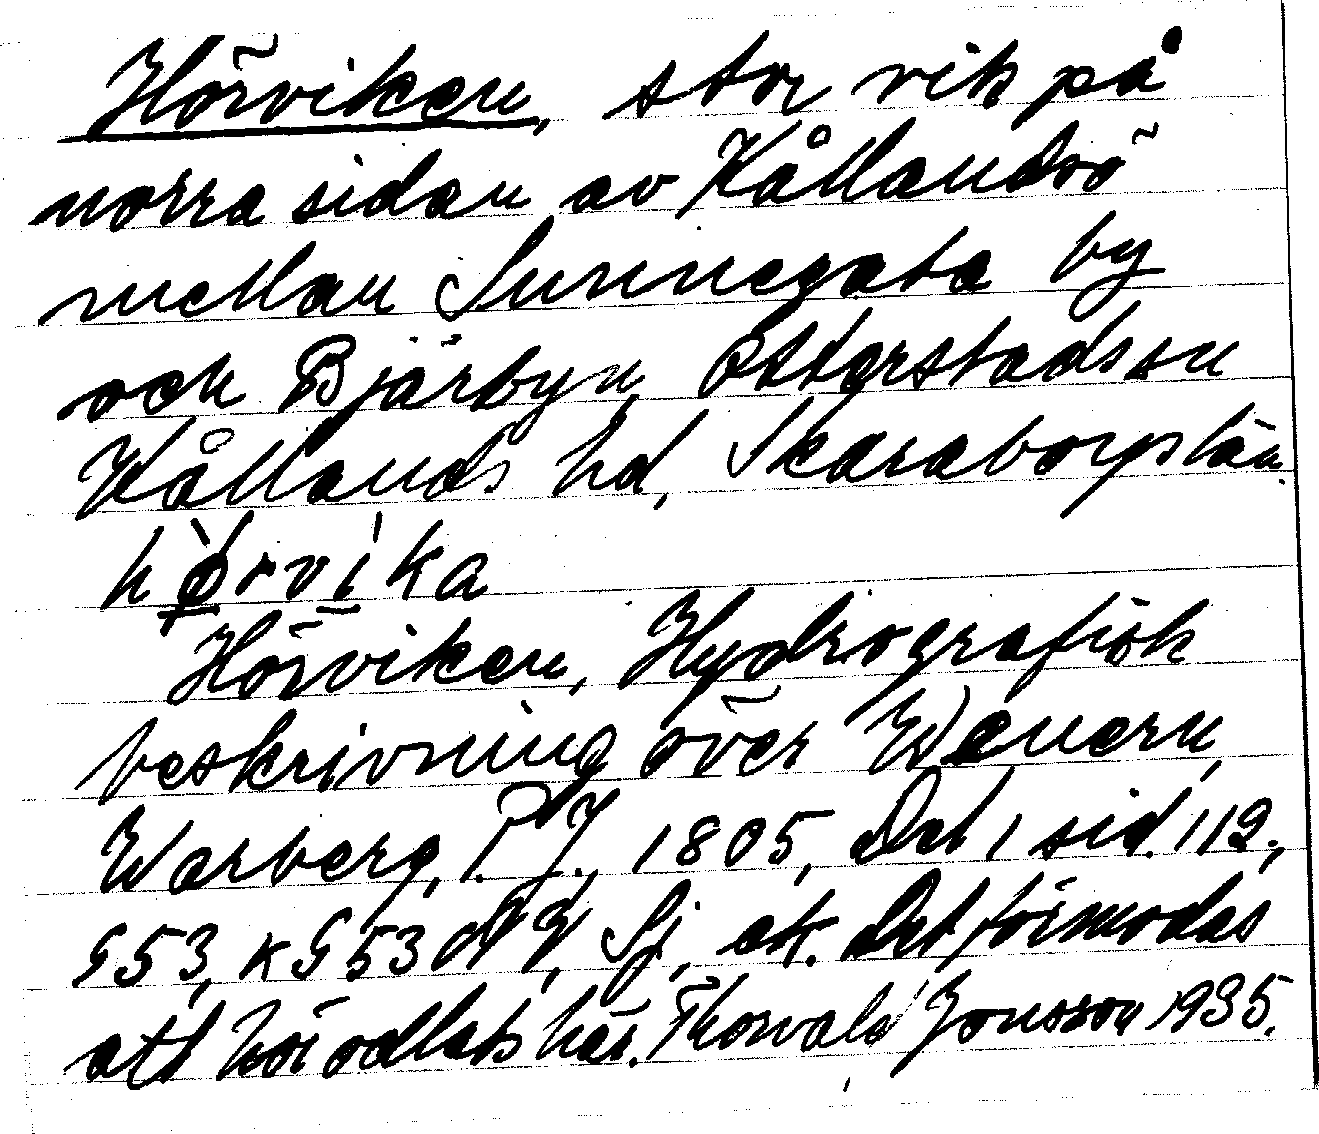 Hörviken, stor vik på
norra sidan av Kållandsö
mellan Sunnegata by
och Bjärbyn, Otterstads sn
Kållands hd, Skaraborgs län.
hörvika
Hörviken, Hydrografisk
beskrivning över Wenern,
Warberg, P. J., 1805, Del 1 sid. 112,
§53, k §53 Sj, ek. Det förmodas
att hör odlats här. Thorvald Jonsson 1935.